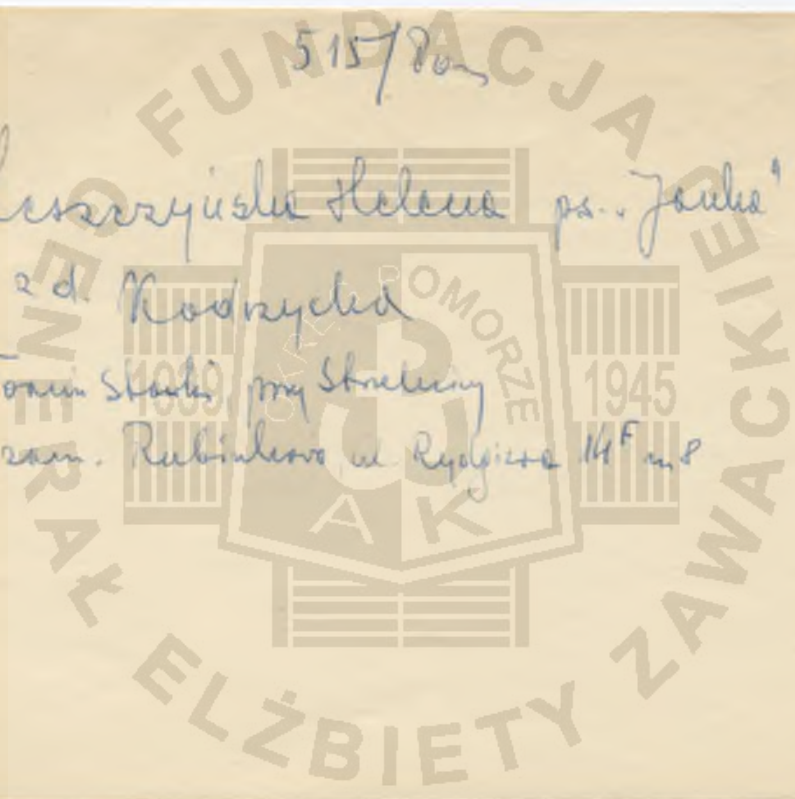 515/Pom
Leszczyńska Helena ps. "Janka"
z d. Kodrzycka
Toruń Stawki, przy Strzelnicy
zam. Rubinkowo, ul. Rydygiera 14F m 8
FUNDACJA GENERAŁ ELŻBIETY ZAWACKIEJ
OKRĘG POMORZE
1939 1945
AK